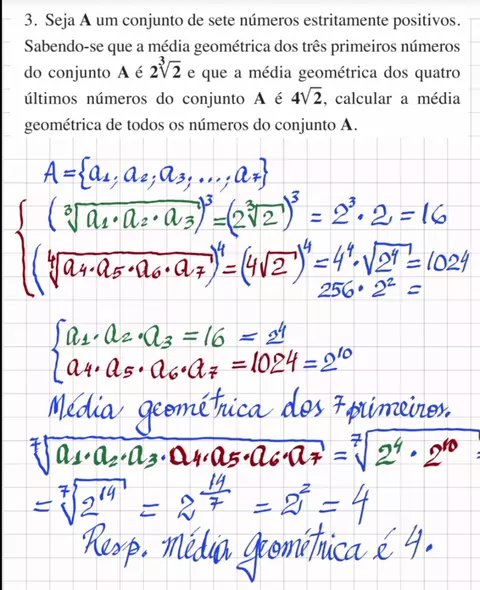 3. Seja A um conjunto de sete números estritamente positivos.
Sabendo-se que a média geométrica dos três primeiros números
do conjunto A é 2∛2 e que a média geométrica dos quatro
últimos números do conjunto A é 4√2, calcular a média
geométrica de todos os números do conjunto A.
A={a1; a2; a3; ...; a7}
(∛(a1·a2·a3))³=(2∛2)³ = 2³·2 = 16
(∜(a4·a5·a6·a7))⁴=(4√2)⁴=4⁴·√2⁴=1024
256·2² =
{a1·a2·a3=16 = 2⁴
{a4·a5·a6·a7 =1024=2¹⁰
Média geométrica dos 7 primeiros.
⁷√(a1·a2·a3·a4·a5·a6·a7) = ⁷√(2⁴·2¹⁰) =
= ⁷√(2¹⁴) = 2^(14/7) = 2² = 4
Resp. média geométrica é 4.